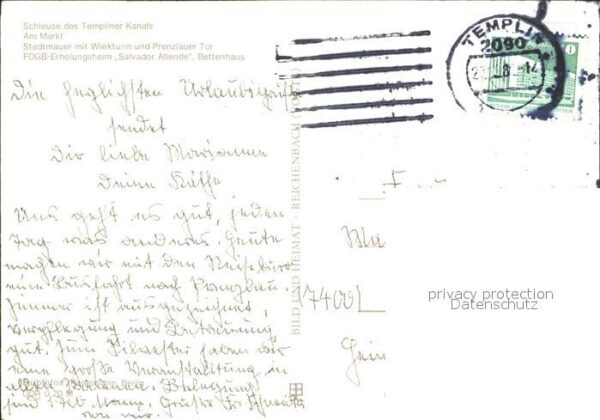 Schleuse des Templiner Kanals
Am Markt
Stadtmauer mit Wiekturm und Prenzlauer Tor
FDGB-Erholungsheim „Salvador Allende“, Bettenhaus
TEMPLIN
2090
Die herzlichsten Urlaubsgrüße
sendet
Dir liebe Marianne
Deine Käthe
Uns geht es gut, jeden
Tag was anderes. Heute
machen wir mit dem Reisebüro
eine Ausfahrt nach Prenzlau.
Zimmer ist ausgezeichnet,
Verpflegung und Betreuung
gut. Zum Silvester haben wir
eine große Veranstaltung in
allen Räumen. Belegung
sind 1700 Mann. Grüße
von mir.
DDR 0,20 M
BILD UND HEIMAT · REICHENBACH
7400
privacy protection
Datenschutz